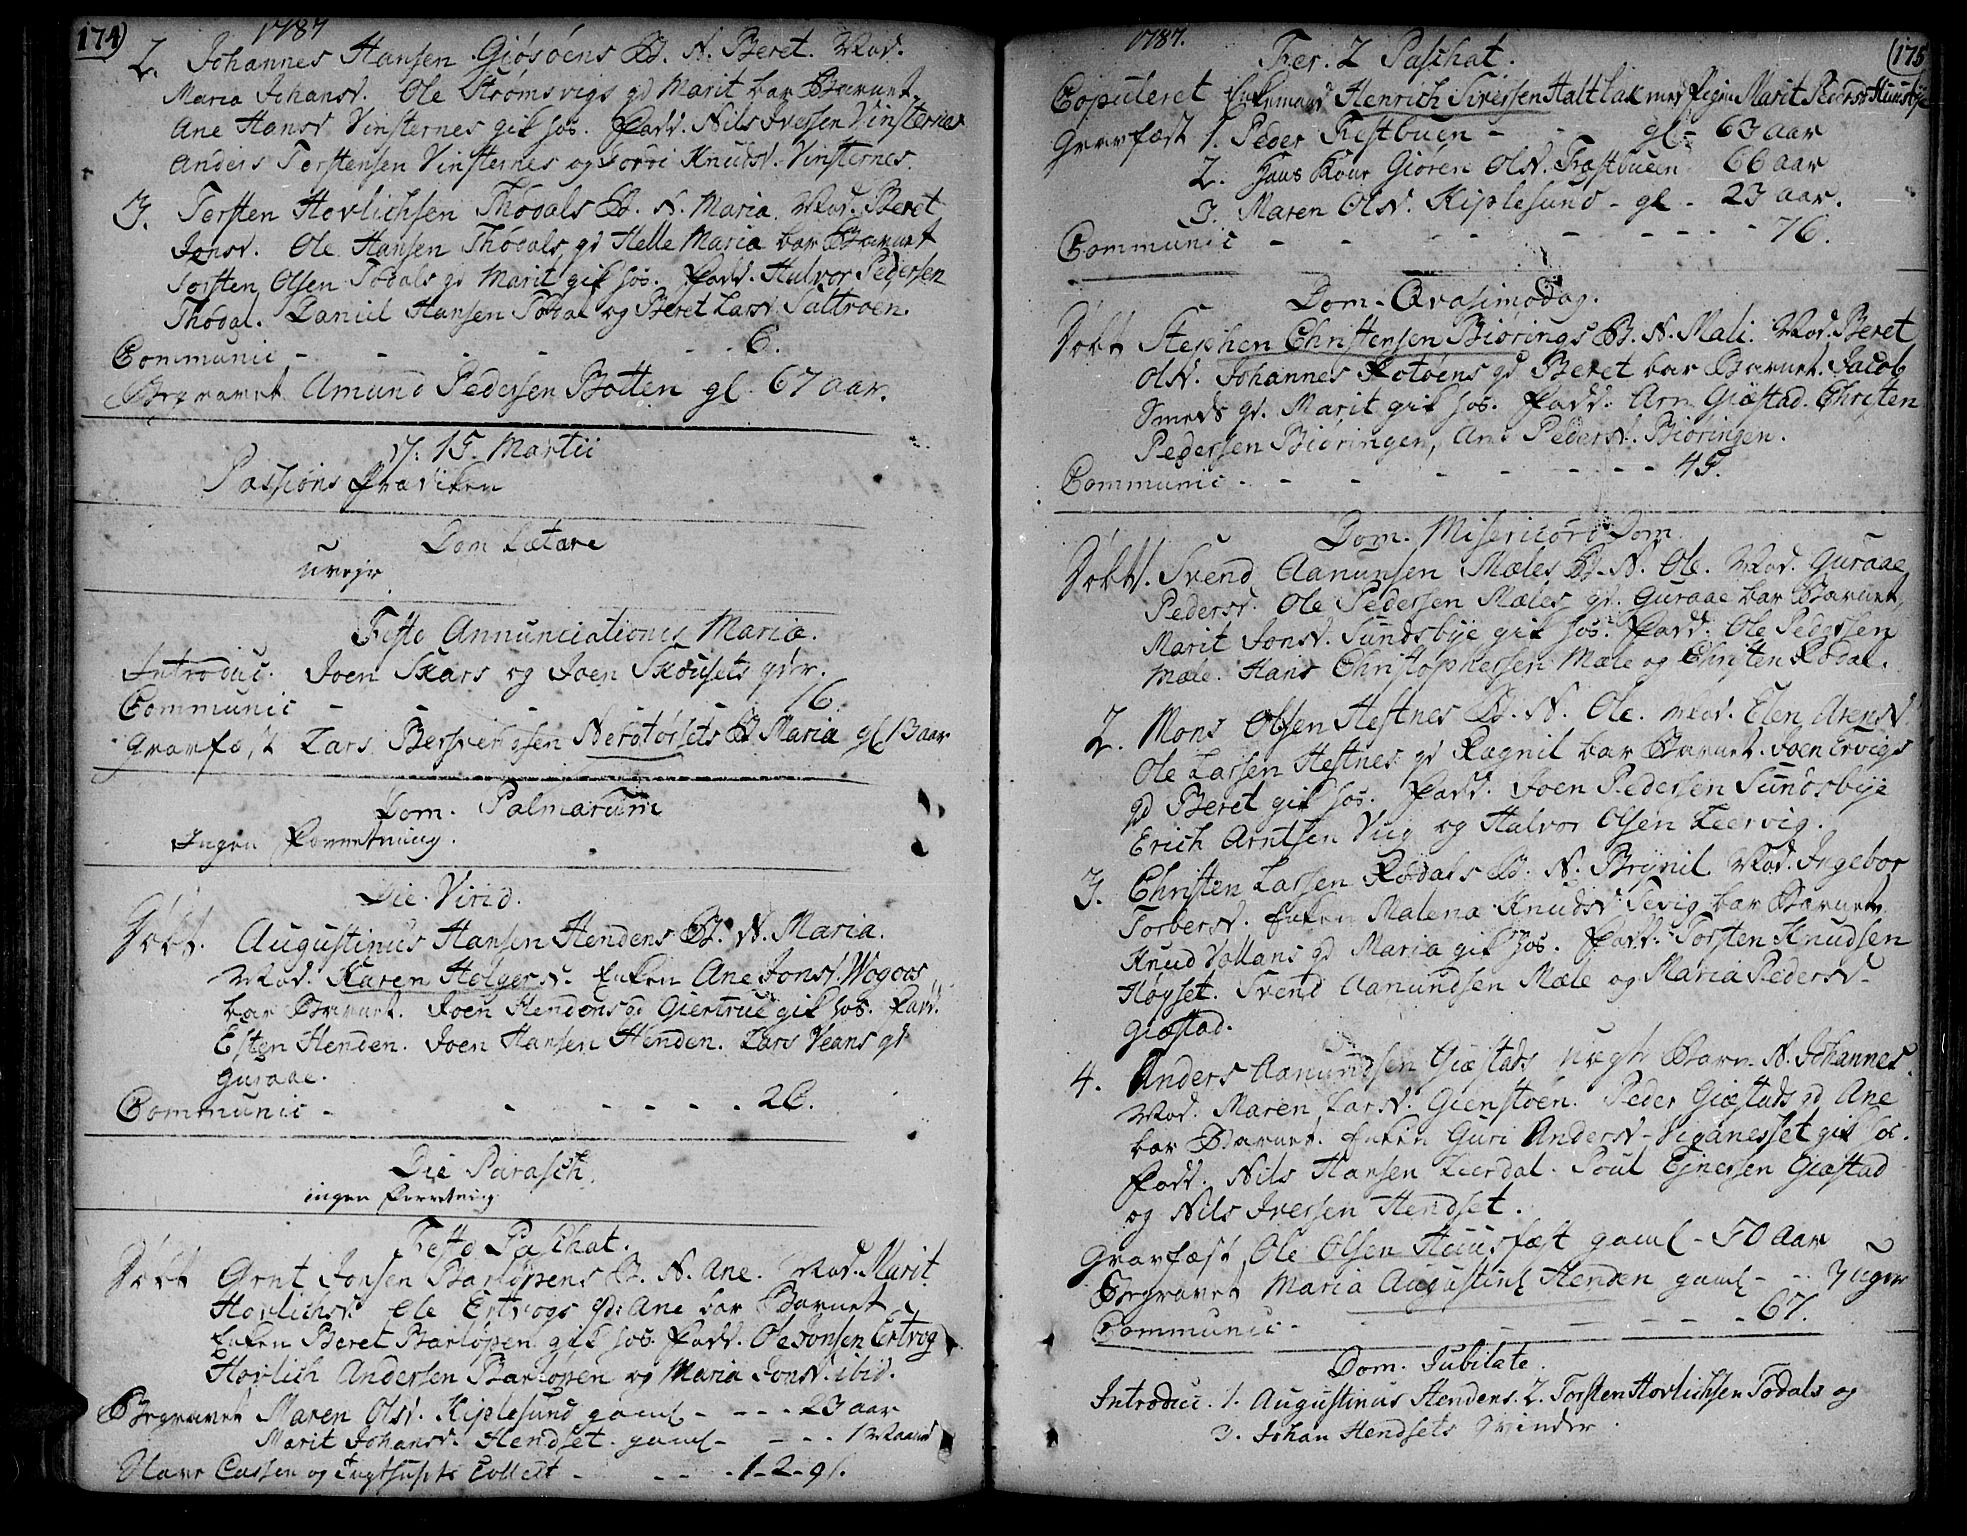 174) 1787
2. Johannes Hansen Giøsøens B. N. Beret. Mod.
Maria Johansd. Ole Strømsvigs qd Marit bar Barnet.
Ane Hansd Vinsternes gik hos. Fadd. Nils Iversen Vinsternes
Anders Torstensen Vinsternes og Knudsd. Vinsternes.
3. Torsten Hovlichsen Thodals B. N. Maria. Mod. Beret
Jonsd. Ole Hansen Thodals qd Helle Maria bar Barnet
Torsten Olsen Todals qd Marit gik hos. Fadd. Halvor Pedersen
Thodal. Daniel Hansen Todal og Beret Larsd Saltroen.
Communic - - - - - 6.
Begravet Amund Pedersen Botten gl. 67 aar.
d: 15 Martii
Passions Prædiken
Dom Lætare
uvejr
Festo Annunciationis Mariæ.
Introduc. Joen Skars og Joen Skousets qdr.
Communic - - - - 16.
Gravfæst Lars Bersvendsen Nerdtørsets B Maria gl 13 aar
Dom. Palmarum
Ingen Forretning.
Die Virid.
Døbt. Augustinus Hansen Hendens B. N. Maria.
Mod. Karen Holgersd. Enken Ane Jonsd Wogoos
bar Barnet. Joen Hendens qd Giertrue gik hos. Fadd.
Esten Henden. Joen Hansen Henden. Lars Veans qd
Guraae.
Communic - - - - - - 26.
Die Parasch.
ingen Forretning.
Festo Paschat.
Døbt Arnt Jonsen Barløpens B. N. Ane. Mod. Marit
Hovlichsd. Ole Ertvogs qd: Ane bar Barnet
Enken Beret Barløpen gik hos. Fadd. Ole Jonsen Ertvog
Hovlich Andersen Barløpen og Maria Jonsd. ibid.
Begravet Maren Olsd. Kiplesund gaml - - - 23 aar
Marit Johansd. Hendset gaml - - - 1 Maaned
Cassen og Collect - - - 1-2-9
1787. (175
Fer. 2 Paschat.
Copuleret Enkemand Henrich Siversen Haltlak med Pigen Marit Pedersd Huusbye
Gravfæst 1. Peder Frestbuen - - gl - 63 aar
2. Hans Kone Giøren Olsd. Frostbueen 66 aar
3. Maren Olsd. Kiplesund - gl - 23 aar.
Communic - - - - - - - 76.
Dom. Qvasimodog.
Døbt Stephen Christensen Biørings B. N. Mali. Mod. Beret
Olsd. Johannes Rotøens qd Beret bar Barnet. Jacob
Smeds qd. Marit gik hos. Fadd. Arn Giøstad. Christen
Pedersen Biøringen, Ane Pedersd. Biøringen.
Communic - - - - - - 45.
Dom. Misericord Dom.
Døbt 1. Svend Aamunsen Mæles B. N. Ole. Mod. Guraae
Pedersd. Ole Pedersen Mæles qd. Guraae bar Barnet
Marit Jonsd. Sundsbye gik hos. Fadd. Ole Pedersen
Mæle. Hans Christophersen Mæle og Christen Rodal.
2. Mons Olsen Hestnes B. N. Ole. Mod. Elen Arensd
Ole Larsen Hestnes qd Ragnil bar Barnet. Joen Ervigs
qd Beret gik hos. Fadd. Joen Pedersen Sundsbye
Erich Arntsen Vug og Halvor Olsen Leervig.
3. Christen Larsen Rodals B. N. Brynil. Mod. Ingebor
Torbersd. Enken Malena Knudsd Tevig bar Barnet
Knud Vollans qd Maria gik hos. Fadd: Torsten Knudsen
Høyset. Svend Aamundsen Mæle og Maria Pedersd
Giøstad.
4. Anders Aamundsen Giøstads uegte Barn N. Johannes.
Mod. Maren Larsd. Gienstøen. Peder Giøstads qd Ane
bar Barnet. Enken Guri Andersd Viganesset gik hos.
Fadd. Nils Hansen Leerdal. Poul Ejnersen Giøstad
og Nils Iversen Hendset.
Gravfæst Ole Olsen Huusfæst gaml - 50 aar
Begravet Maria Augustins Henden gaml - - 3 uger
Communic - - - - - - 67.
Dom. Jubilate.
Introduc. 1. Augustinus Hendens. 2. Torsten Hovlichsen Todals og
3. Johan Hendsets Qvinder.